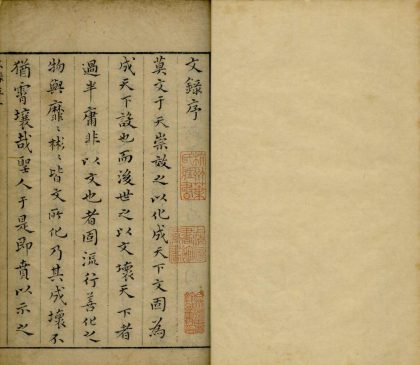 文錄序
莫文于天崇效之以化成天下文固為
成天下設也而後世之以文壞天下者
過半庸非以文也者固流行善化之
物與靡〻彬〻皆文所化乃其成壞不
猶霄壤哉聖人于是即賁以示之